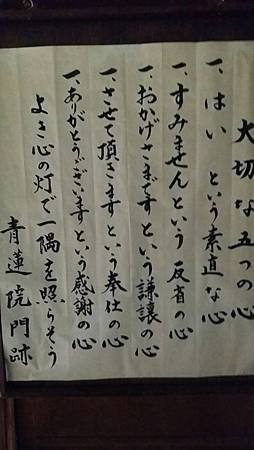 大切な五つの心
一、はい という素直な心
一、すみませんという反省の心
一、おかげさまですという謙譲の心
一、させて頂きますという奉仕の心
一、ありがとうございますという感謝の心
よき心の灯で一隅を照らそう
青蓮院門跡